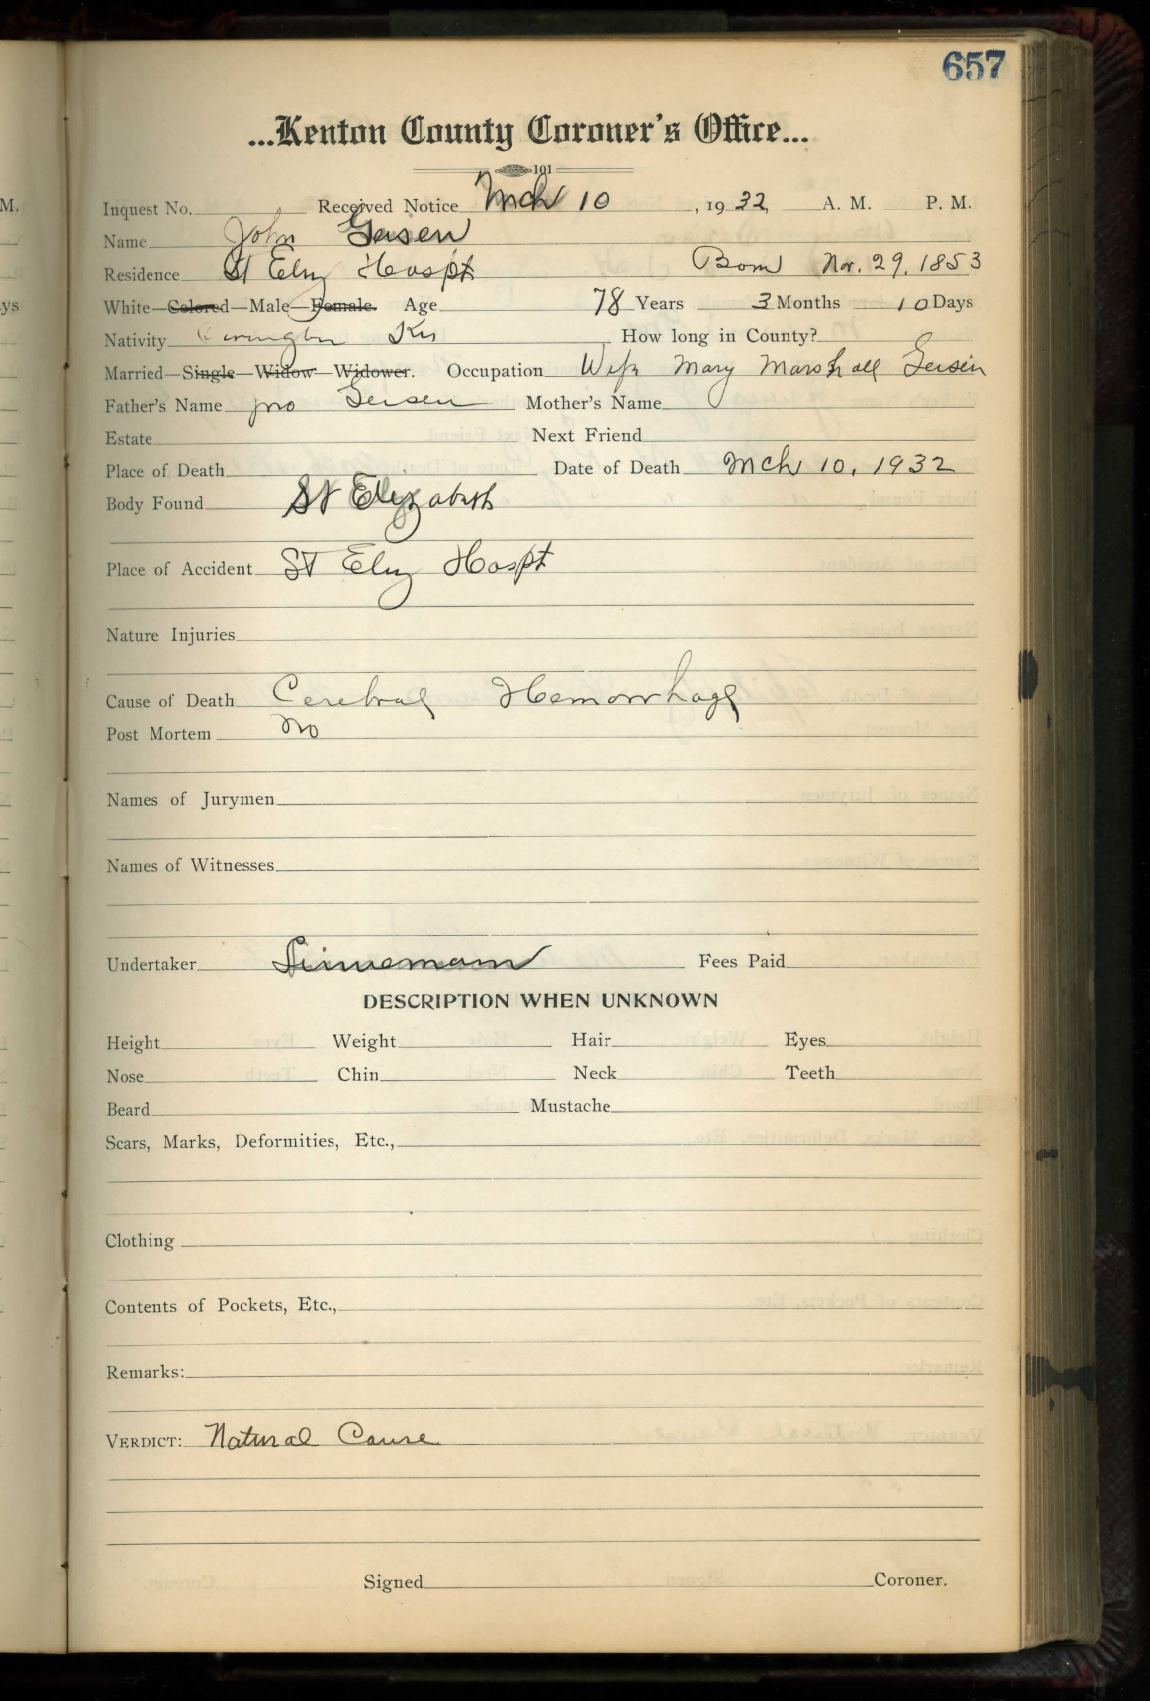 657
...Kenton County Coroner's Office...
101
Inquest No. Received Notice Mch 10, 1932, A. M. P. M.
Name John Geisen
Residence St Eliz Hospt Born Nov. 29, 1853
White—Colored—Male—Female. Age 78 Years 3 Months 10 Days
Nativity Covington Ky How long in County?
Married—Single—Widow—Widower. Occupation Wife Mary Marshall Geisen
Father's Name Jno Geisen Mother's Name
Estate Next Friend
Place of Death Date of Death Mch 10, 1932
Body Found St Elizabeth
Place of Accident St Eliz Hospt
Nature Injuries
Cause of Death Cerebral Hemorrhage
Post Mortem No
Names of Jurymen
Names of Witnesses
Undertaker Linnemann Fees Paid
DESCRIPTION WHEN UNKNOWN
Height Weight Hair Eyes
Nose Chin Neck Teeth
Beard Mustache
Scars, Marks, Deformities, Etc.,
Clothing
Contents of Pockets, Etc.,
Remarks:
VERDICT: Natural Cause
Signed Coroner.